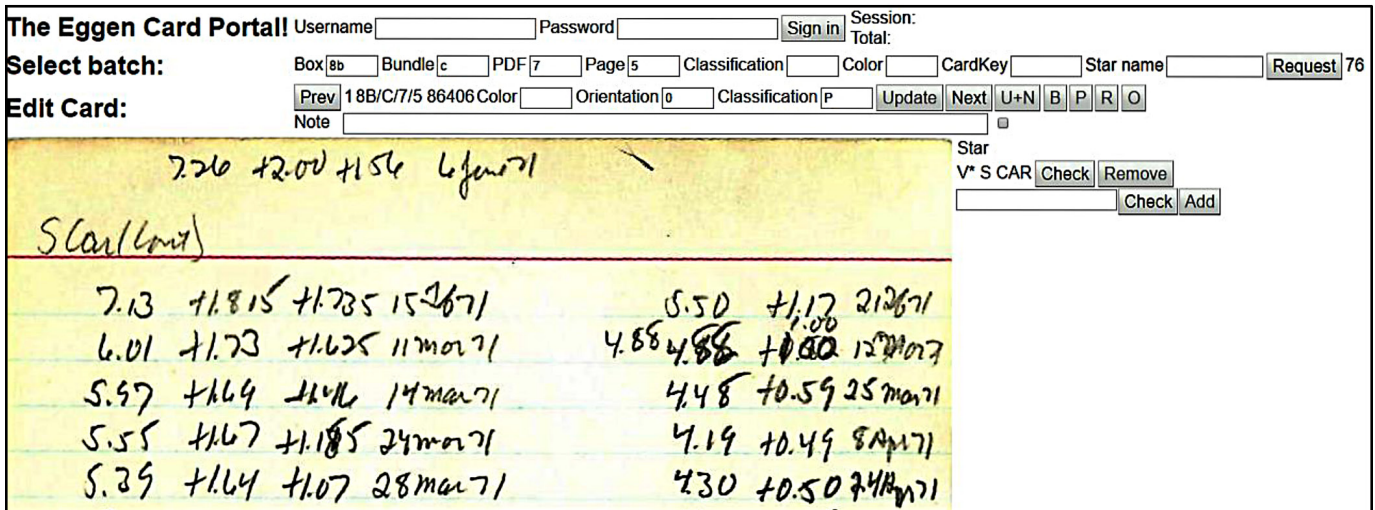 The Eggen Card Portal! Username Password Sign in Session:
Total:
Select batch: Box 8b Bundle c PDF 7 Page 5 Classification Color CardKey Star name Request 76
Edit Card: Prev 1 8B/C/7/5 86406 Color Orientation 0 Classification P Update Next U+N B P R O
Note
Star
V* S CAR Check Remove
Check Add
7.26 +2.00 +1.56 6 June 71
S Car (Cont)
7.13 +1.815 +1.735 15 Feb 71 5.50 +1.17 21 Feb 71
1.00
6.01 +1.73 +1.625 11 Mar 71 4.88 4.88 12 Mar 7
5.97 +1.69 14 Mar 71 4.48 +0.59 25 Mar 71
5.55 +1.67 +1.185 24 Mar 71 4.19 +0.49 8 Apr 71
5.39 +1.64 +1.07 28 Mar 71 4.30 +0.50 24 Apr 71